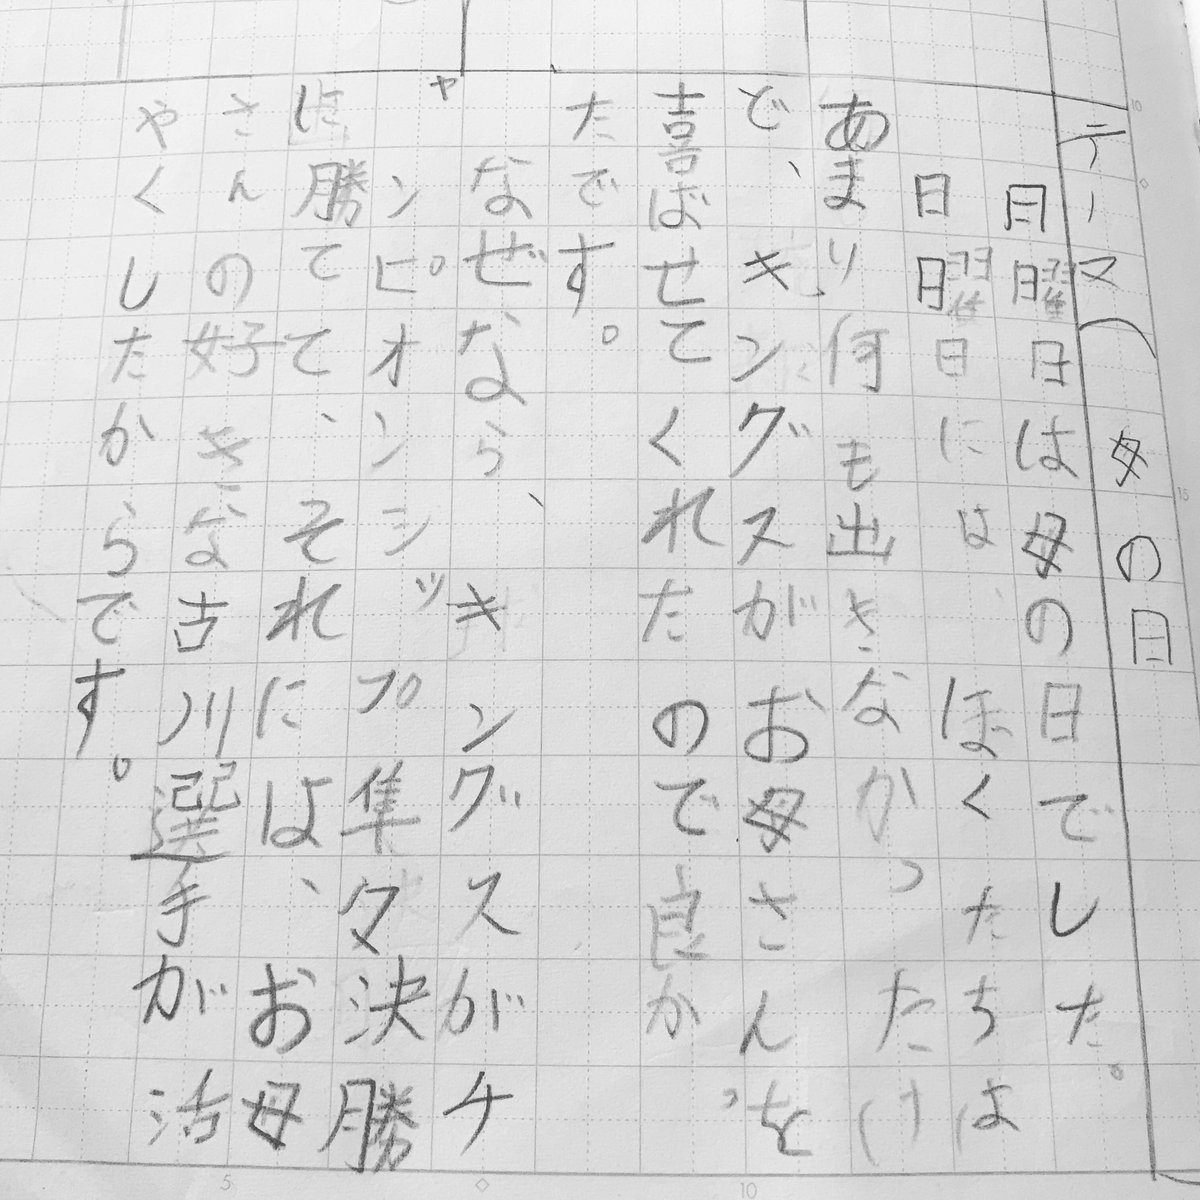 テーマ（母の日
日曜日は母の日でした。
日曜日には、ぼくたちは
あまり何も出きなかったけ
ど、キングスがお母さんを
喜ばせてくれたので良かっ
たです。
なぜなら、キングスがチ
ャンピオンシップ準々決勝
に勝てて、それには、お母
さんの好きな古川選手が活
やくしたからです。
10
15
5
10